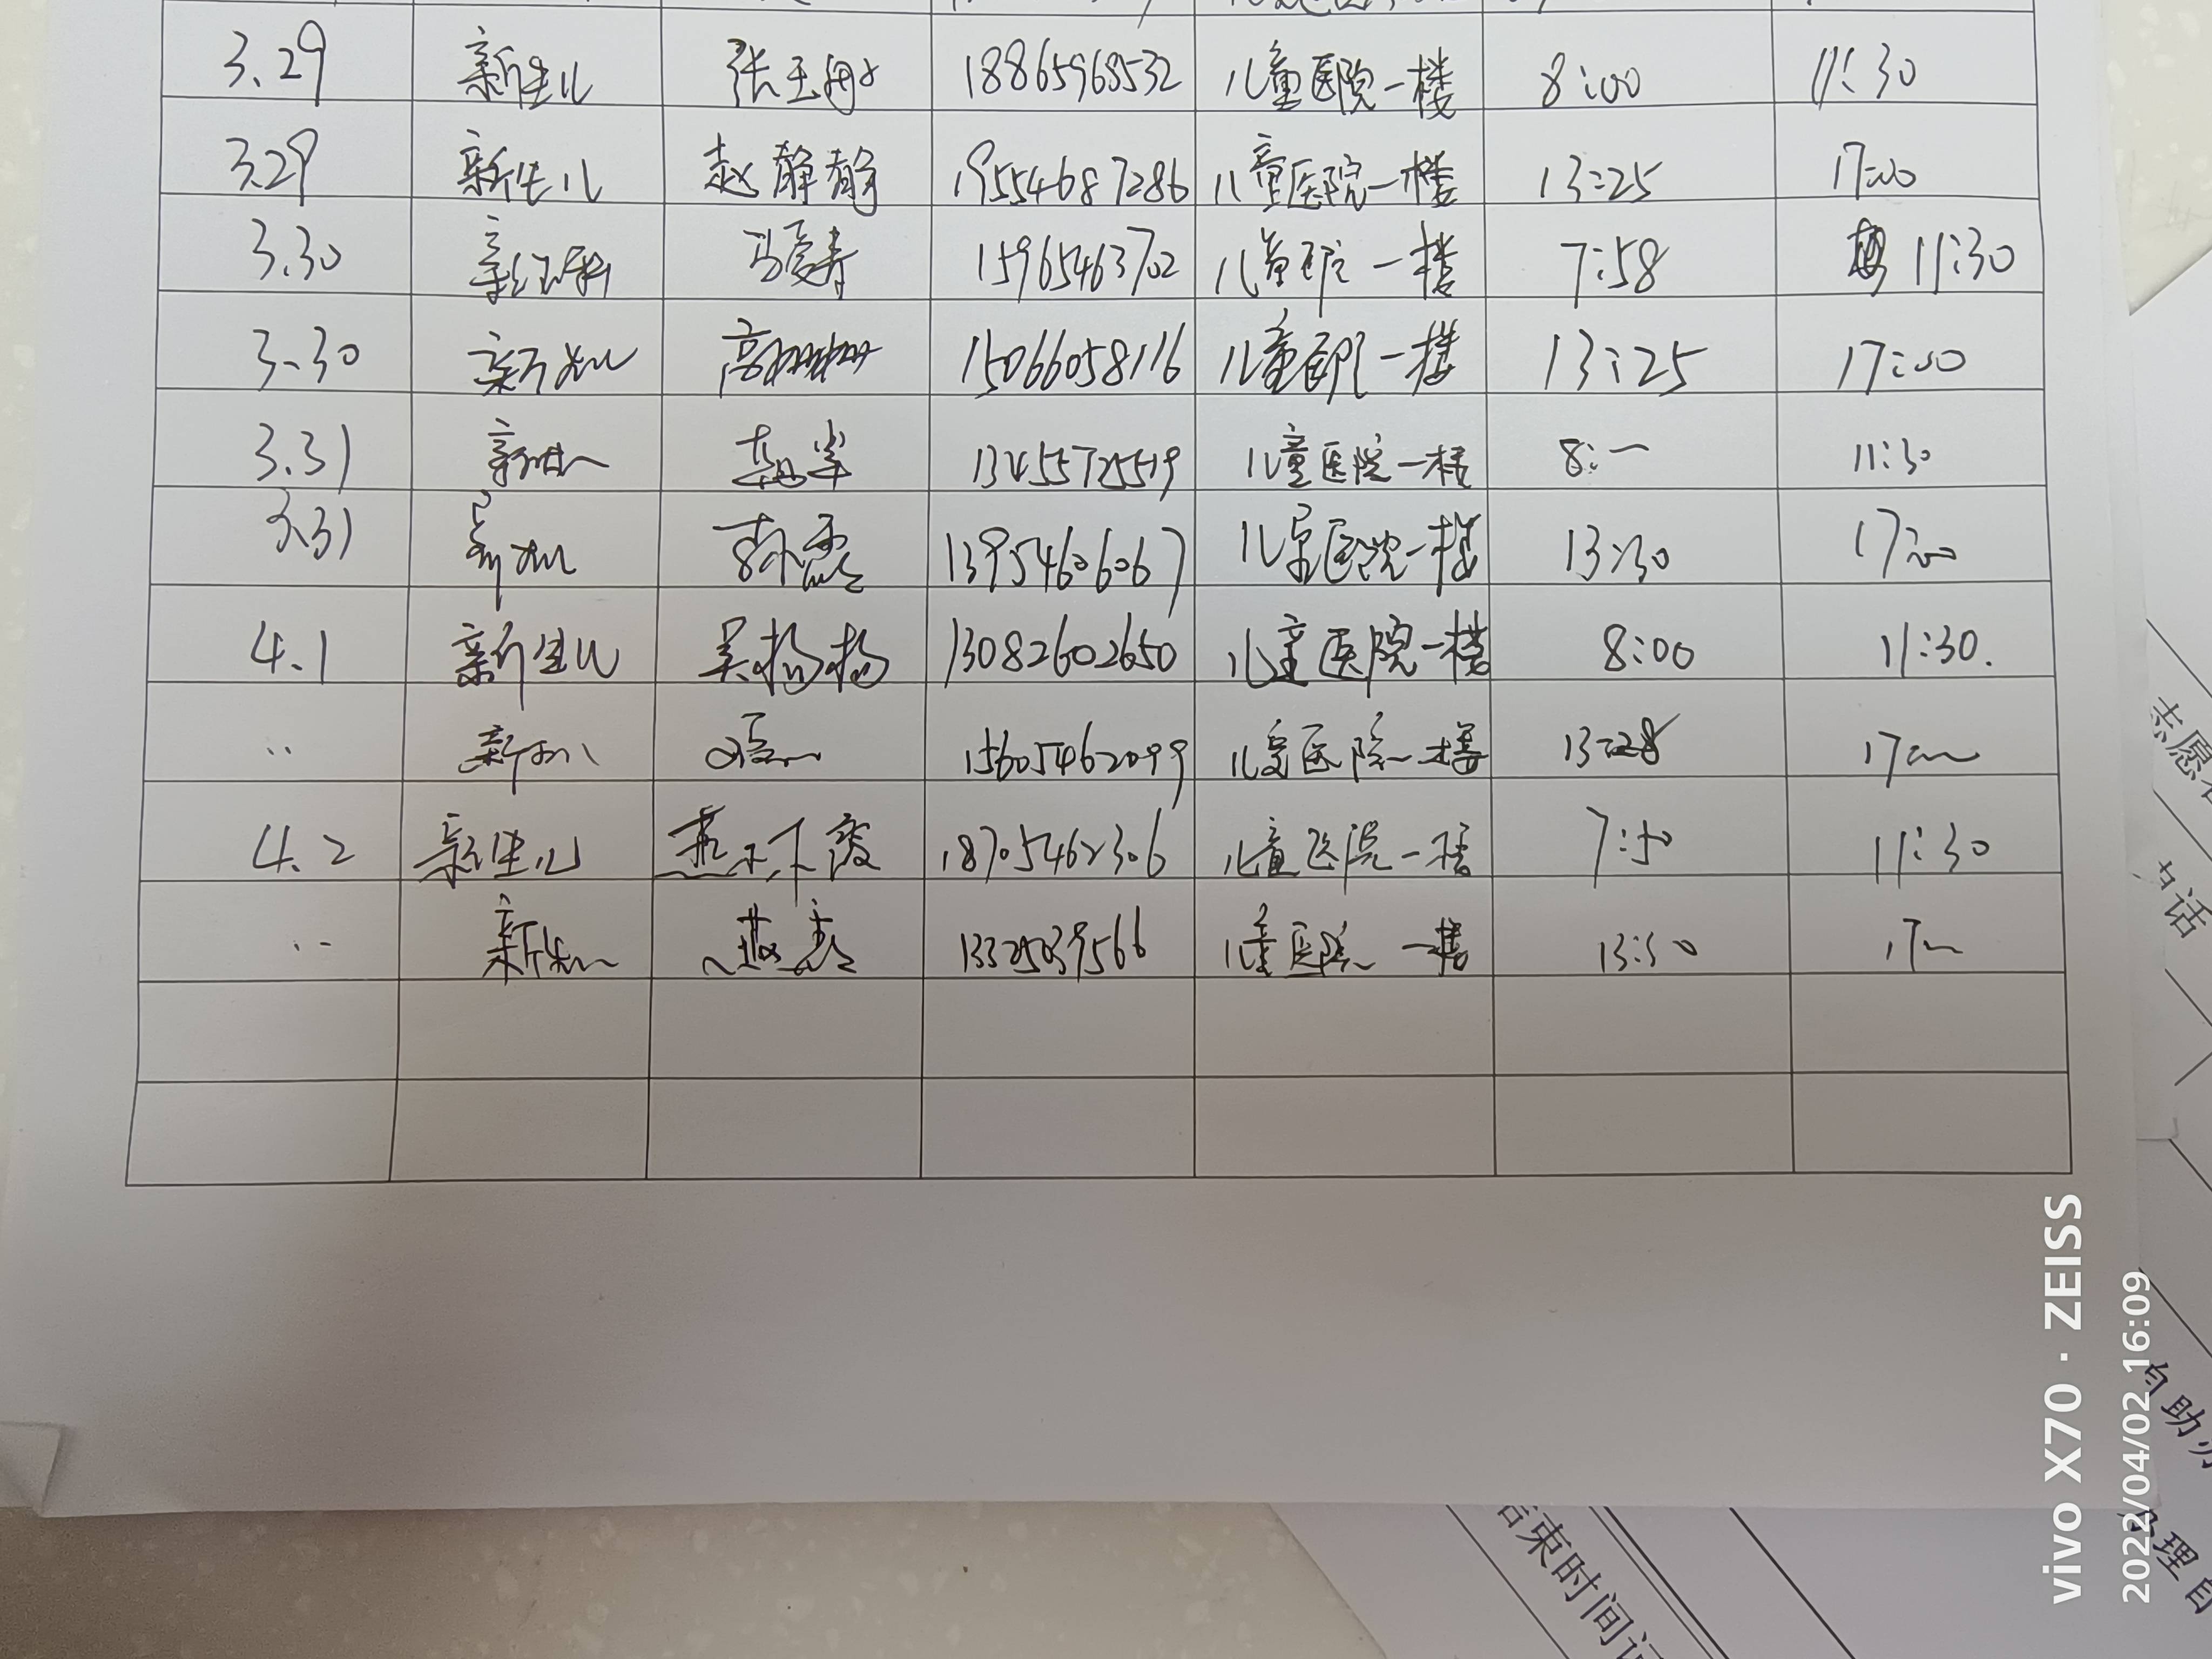 3.29 新生儿 张玉 18865968532 儿童医院一楼 8:00 11:30
3.29 新生儿 赵静静 19554687286 儿童医院一楼 13:25 17:00
3.30 马爱青 15965463702 儿童医院一楼 7:58 11:30
3.30 新生儿 高姗姗 15066058116 儿童医院一楼 13:25 17:00
3.31 新生儿 13455725519 儿童医院一楼 8:一 11:30
3.31 新生儿 孙霞 13954606067 儿童医院一楼 13:30 17:00
4.1 新生儿 吴杨杨 13082602650 儿童医院一楼 8:00 11:30.
·· 新生儿 15605462099 儿童医院一楼 13:28 17
4.2 新生儿 霞 18705462306 儿童医院一楼 7:50 11:30
·· 新生儿 燕 13325039566 儿童医院一楼 13:30 17
志愿者
电话
自助
理自
结束时间
vivo X70 · ZEISS
2022/04/02 16:09